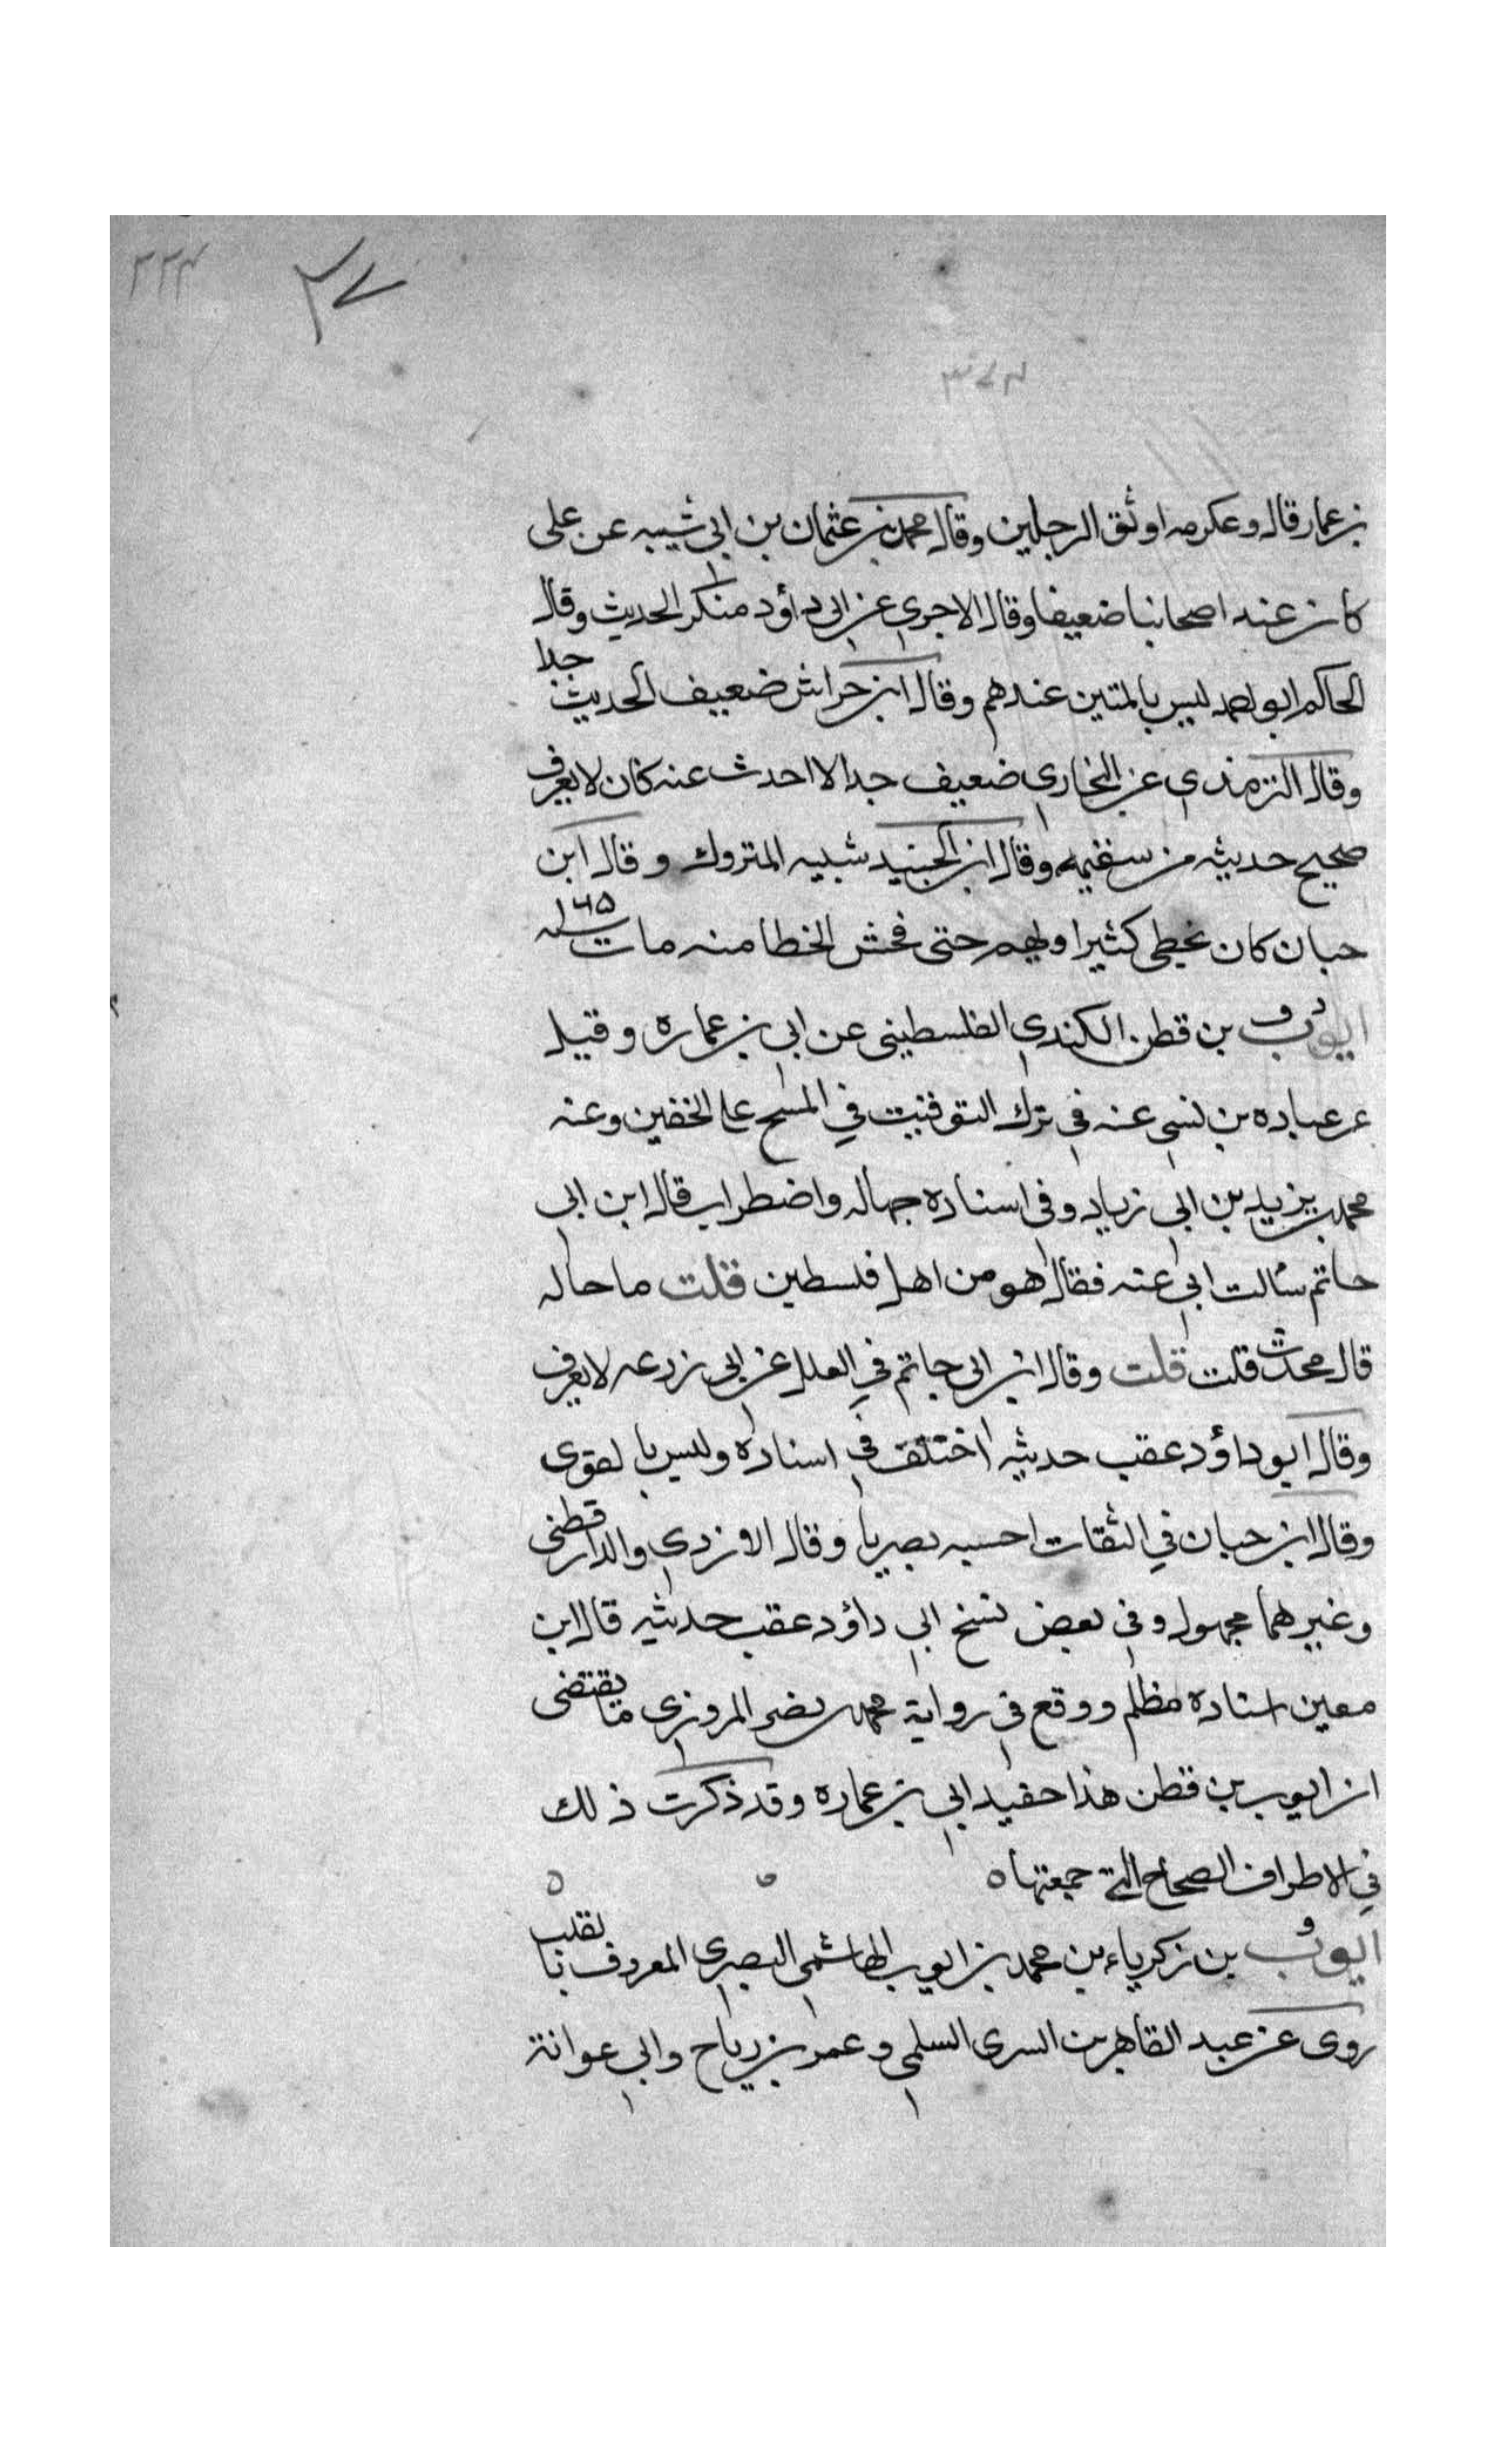 ٢٢٤
٢٧
٣٤٤
بن عمار قال وعكرمه اوثق الرجلين وقال محمد بن عثمان بن ابي شيبه عن على
كان عند اصحابنا ضعيفا وقال الاجري عن ابي داؤد منكر الحديث وقال
الحاكم ابو احمد ليس بالمتين عندهم وقال ابن خراش ضعيف الحديث جدا
وقال الترمذي عن البخاري ضعيف جدا لا احدث عنه كان لا يعرف
صحيح حديثه من سقيمه وقال ابن الجنيد شبيه المتروك وقال ابن
حبان كان يخطى كثيرا ويهم حتى فحش الخطا منه مات سنه ١٦٥
ايوب بن قطن الكندي الفلسطينى عن ابي بن عماره وقيل
عن عباده بن نسي عنه في ترك التوقيت في المسح على الخفين وعنه
محمد بن يزيد بن ابي زياد وفي اسناده جهاله واضطراب قال ابن ابي
حاتم سالت ابي عنه فقال هو من اهل فلسطين قلت ما حاله
قال محدث قلت قلت وقال ابن ابي حاتم في العلل عن ابي زرعه لا يعرف
وقال ابو داؤد عقب حديثه اختلف في اسناده وليس بالقوى
وقال ابن حبان في الثقات احسبه بصريا وقال الازدي والدارقطنى
وغيرهما مجهول وفي بعض نسخ ابي داؤد عقب حديثه قال ابن
معين اسناده مظلم ووقع في رواية محمد بن نصر المروزي ما يقتضى
ان ايوب بن قطن هذا حفيد ابي بن عماره وقد ذكرت ذلك
في الاطراف الصحاح التي جمعتها ٥ ٥ ٥
ايوب بن زكرياء بن محمد بن ايوب الهاشمي البصري المعروف بالقلب
روى عن عبد القاهر بن السرى السلمي وعمر بن رياح وابي عوانة